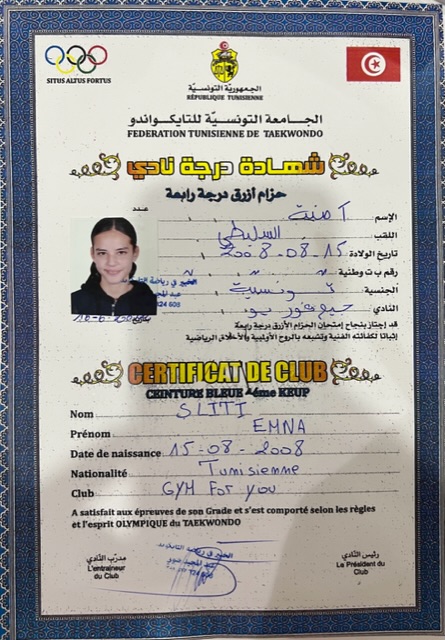 SITUS ALTUS FORTUS
الجمهورية التونسية
RÉPUBLIQUE TUNISIENNE
الجامعة التونسية للتايكواندو
FEDERATION TUNISIENNE DE TAEKWONDO
شهادة درجة نادي
حزام أزرق درجة رابعة
عدد
الإسم آمنة
اللقب السليطي
تاريخ الولادة 2008-08-15
رقم ب ت وطنية
الجنسية تونسية
النادي جيم فور يو
قد إجتاز بنجاح إمتحان الحزام الأزرق درجة رابعة
إثباتا لكفائته الفنية وتشبعه بالروح الأولمبية والأخلاق الرياضية
CERTIFICAT DE CLUB
CEINTURE BLEUE 4éme KEUP
Nom SLITI
Prénom EMNA
Date de naissance 15-08-2008
Nationalité Tunisienne
Club GYM For you
A satisfait aux épreuves de son Grade et s'est comporté selon les règles
et l'esprit OLYMPIQUE du TAEKWONDO
مدرب النادي
L'entraineur
du Club
رئيس النادي
Le Président
du Club